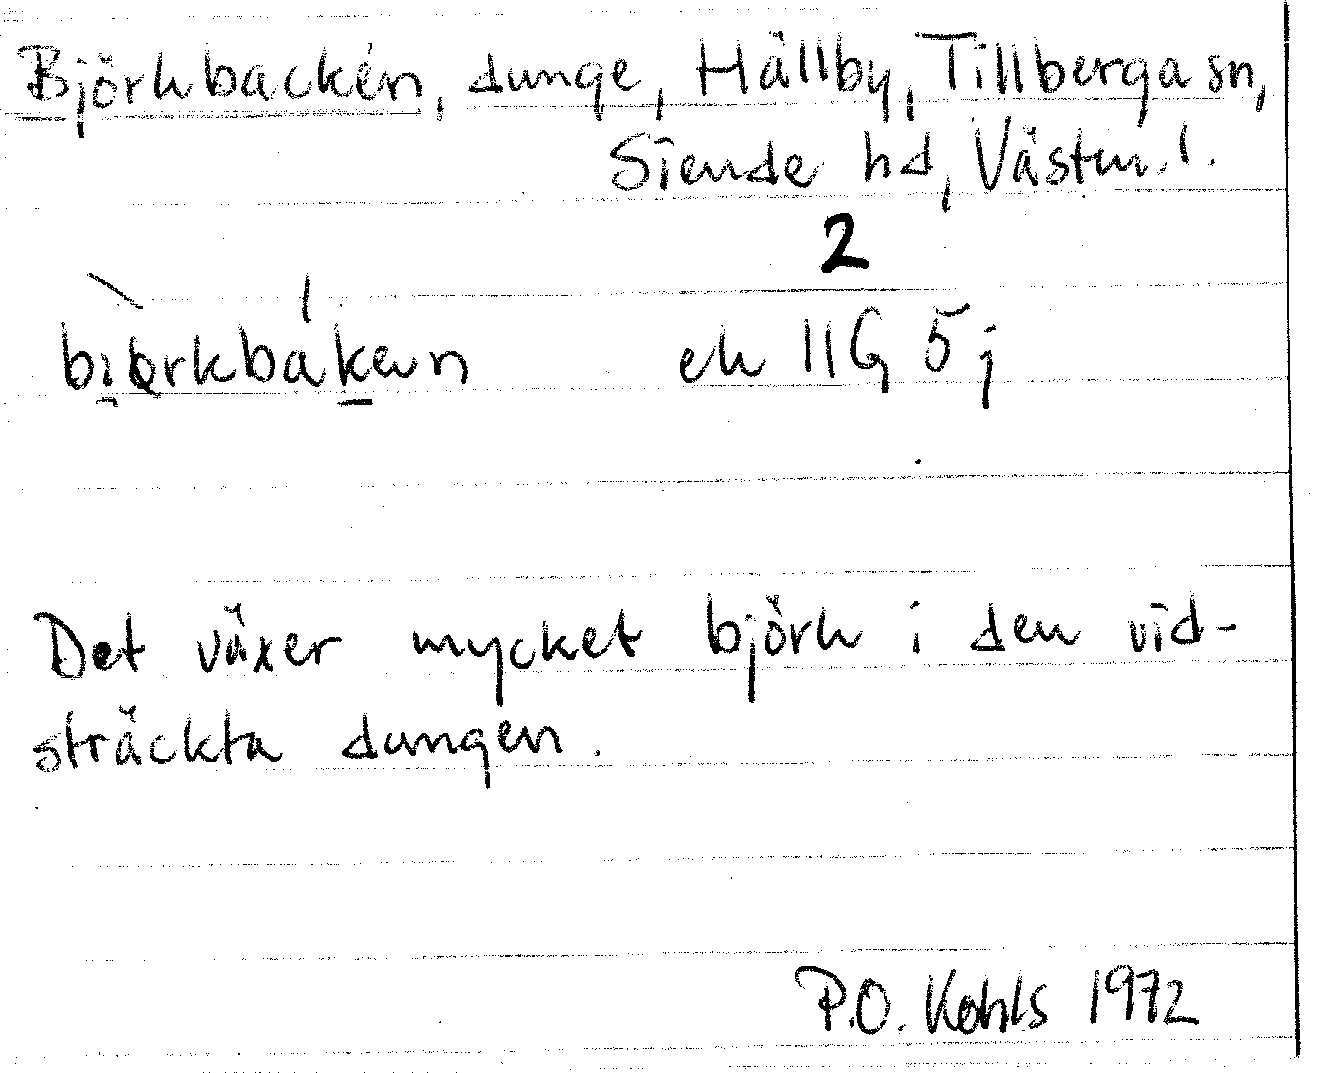 Björkbacken, dunge, Hällby, Tillberga sn,
Siende hd, Västm. l.
2
bi̯örkbak̲en ek 11G 5j
Det växer mycket björk i den vid-
sträckta dungen.
P.O. Kohls 1972